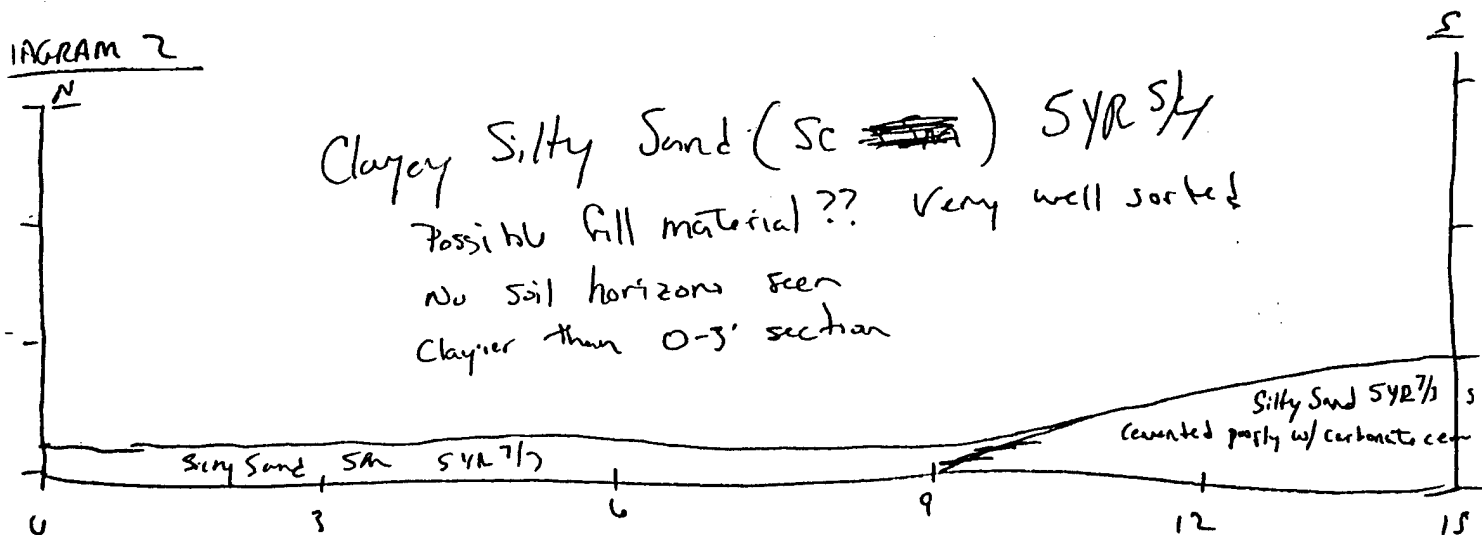 IAGRAM 2
N
S
Clayey Silty Sand (SC ) 5YR 5/4
Possible fill material?? Very well sorted
No soil horizons seen
Clayier than 0-3' section
Silty Sand 5YR 7/3 S
cemented poorly w/ carbonate cem
Silty Sand SM 5YR 7/3
0 3 6 9 12 15